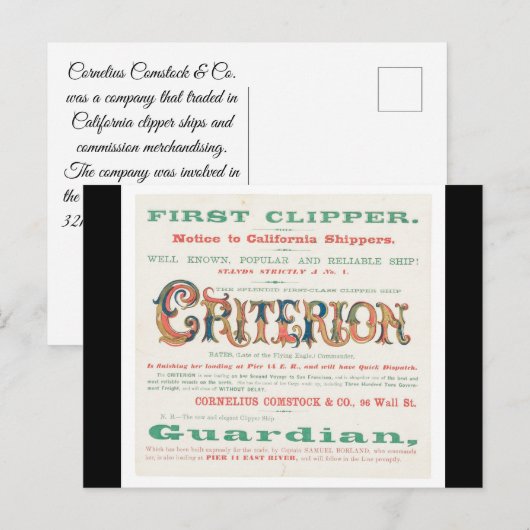 Cornelius Comstock & Co.
was a company that traded in
California clipper ships and
commission merchandising.
The company was involved in
the
32
FIRST CLIPPER.
Notice to California Shippers.
WELL KNOWN, POPULAR AND RELIABLE SHIP!
STANDS STRICTLY A No. 1.
THE SPLENDID FIRST-CLASS CLIPPER SHIP
CRITERION
BATES, (Late of the Flying Eagle,) Commander,
Is finishing her loading at Pier 14 E. R., and will have Quick Dispatch.
The CRITERION is now loading on her Second Voyage to San Francisco, and is altogether one of the best and
most reliable vessels on the berth. She has the most of her Cargo made up, including Three Hundred Tons Govern-
ment Freight, and will clear WITHOUT DELAY.
CORNELIUS COMSTOCK & CO., 96 Wall St.
N. B.—The new and elegant Clipper Ship
Guardian,
Which has been built expressly for the trade, by Captain SAMUEL BORLAND, who commands
her, is also loading at PIER 11 EAST RIVER, and will follow in the Line promptly.